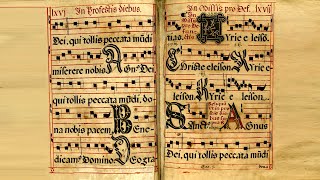 lxvj
In Profestis diebus.
Dei, qui tollis peccata mūdi
miserere nobis. Agn⁹ Dei
qui tollis peccata mūdi do
na nobis pacem. Bene
dicam⁹ Domino. Deo gra
In Officiis pro Def. lxvij
tias. Kyrie eleiso.
Christe eleison. Kyrie
eleison. Kyrie eleison.
Sanct Agnus
Dei, qui tollis peccata mūdi